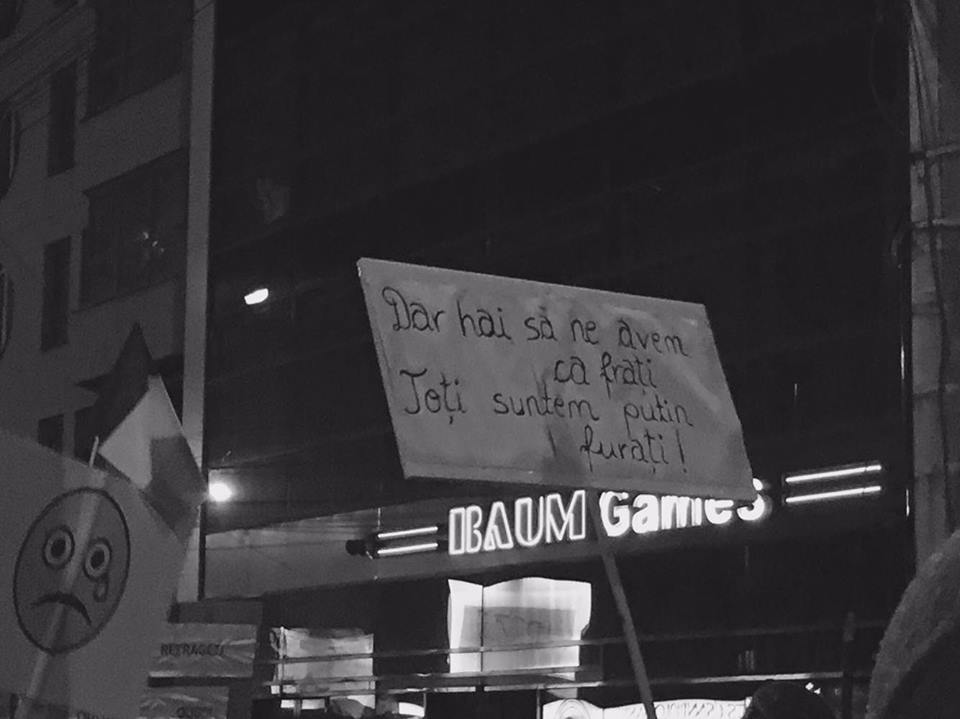 Dar hai să ne avem
ca frați
Toți suntem puțin
furați!
BAUM Games
RETRAGEȚI